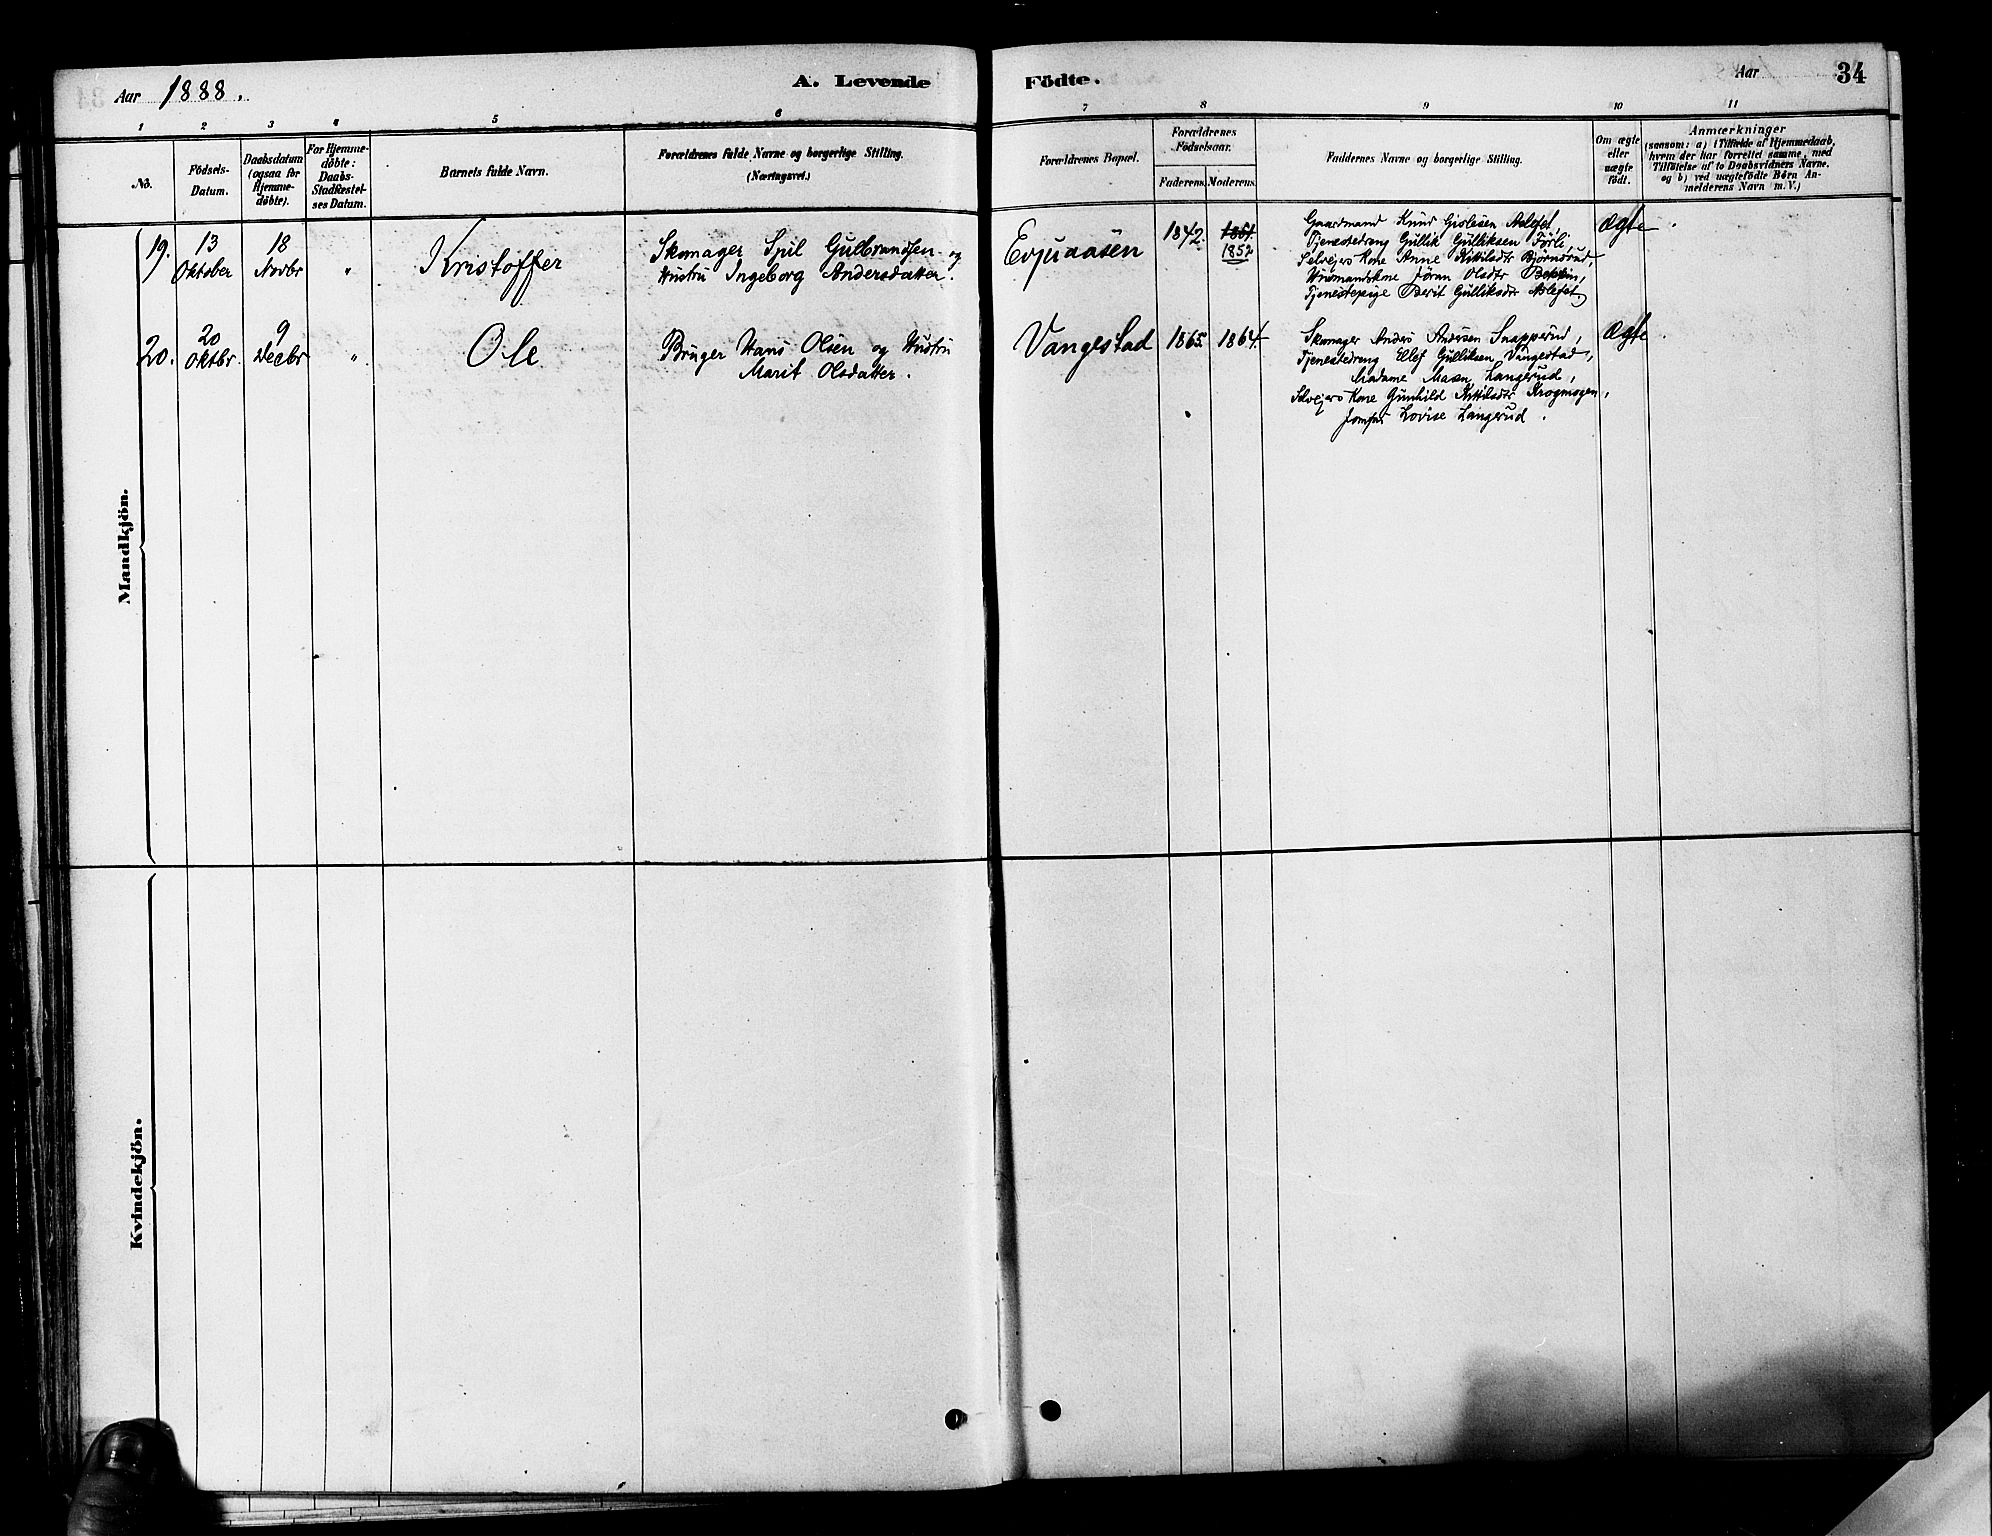 Aar 1888.
A. Levende Födte.
Aar
34
1 2 3 4 5 6 7 8 9 10 11
No.
Födsels-
Datum.
Daabsdatum
(ogsaa for
Hjemme-
döbte).
For Hjemme-
döbte:
Daabs-
Stadfæstel-
ses Datum.
Barnets fulde Navn.
Forældrenes fulde Navne og borgerlige Stilling.
(Næringsvei.)
Forældrenes Bopæl.
Forældrenes
Födselsaar.
Faderens. Moderens.
Faddernes Navne og borgerlige Stilling.
Om ægte
eller
uægte
födt.
Anmærkninger
(saasom: a) i Tilfælde af Hjemmedaab,
hvem der har forrettet samme, med
Tilföielse af to Daabsvidners Navne,
og b) ved uægtefödte Börn An-
melderens Navn m. V.)
Mandkjön.
19.
13
Oktober
18
Novbr
"
Kristoffer
Skomager Gulbrandsen og
Hustru Ingeborg Andersdatter.
Evjuaasen
1842.
1851.
1852
Gaardmand Knud Gislesen Aslefet,
Tjenestedreng Gullik Gulliksen Förli,
Selveiers Kone Anne Kittilsdtr Björndrud,
Husmandskone Jöran Olsdtr
Tjenestepige Berit Gulliksdtr Aslefet.
Ægte
20.
20
Oktbr.
9
Decbr
"
Ole
Bruger Hans Olsen og Hustru
Marit Olsdatter.
Vangestad
1865.
1864.
Skomager Anders Andersen Snapperud,
Tjenestedreng Ellef Gulliksen Vangestad,
Madame Maren Langerud,
Selveiers Kone Gunhild Kittilsdtr Krogmogen,
Jomfru Lovise Langerud.
Ægte
Kvindekjön.